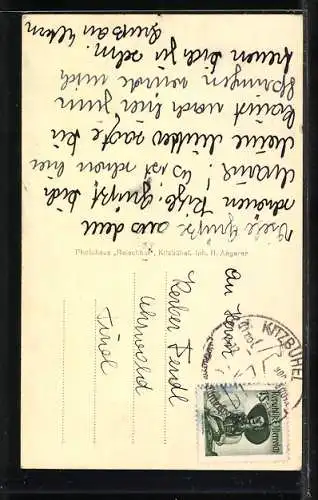 Viele Grüße aus dem
schönen Kitz. Grüßt Dich
Maria! Es ist schön hier
meine Mutter sagte Du
kommst nach hier zum
Springen würde mich
freuen Dich zu sehn.
Gruß an Eltern
Photohaus „Reischhof“, Kitzbühel. Inh. H. Angerer
An Herrn
Ferdl
Ehrwald
Tirol
KITZBÜHEL